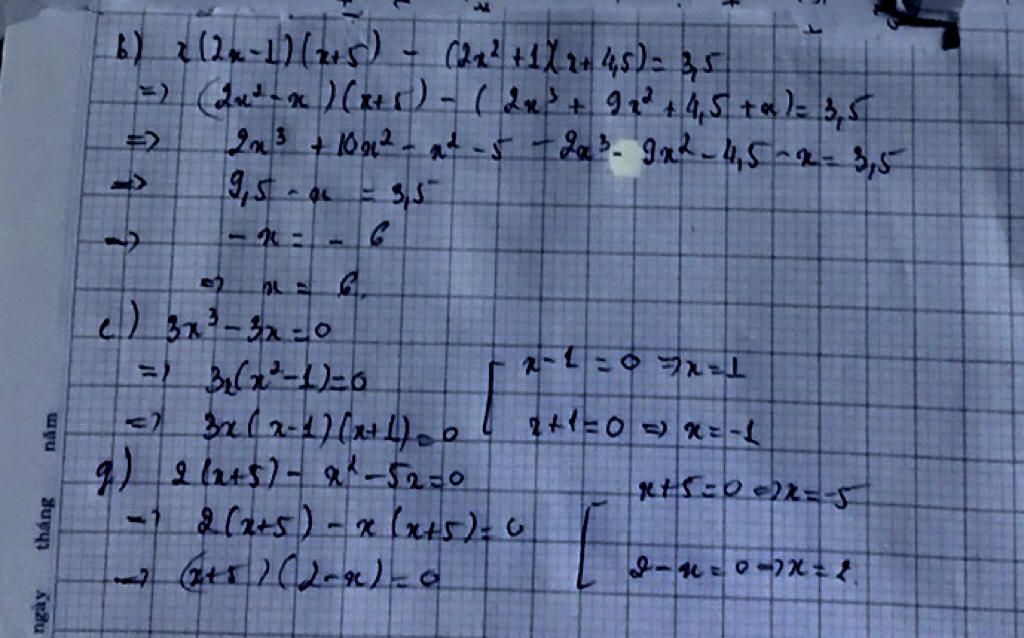 b) x(2x-1)(x+5) - (2x²+1)(x+4,5) = 3,5
=> (2x² - x)(x+5) - (2x³ + 9x² + 4,5 + x) = 3,5
=> 2x³ + 10x² - x² - 5 - 2x³ - 9x² - 4,5 - x = 3,5
=> 9,5 - x = 3,5
=> - x = - 6
=> x = 6.
c) 3x³ - 3x = 0
=> 3x(x²-1)=0 [ x-1 = 0 => x=1
=> 3x(x-1)(x+1)=0 x+1=0 => x=-1
g) 2(x+5) - x² - 5x=0 [ x+5=0 => x=-5
=> 2(x+5) - x(x+5)=0
=> (x+5)(2-x)=0 2-x=0 => x=2.
ngày tháng năm